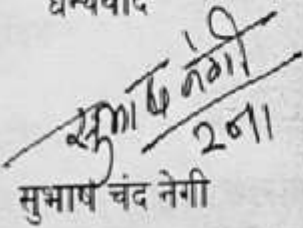 धन्यवाद
सुभाष नेगी
सुभाष चंद नेगी